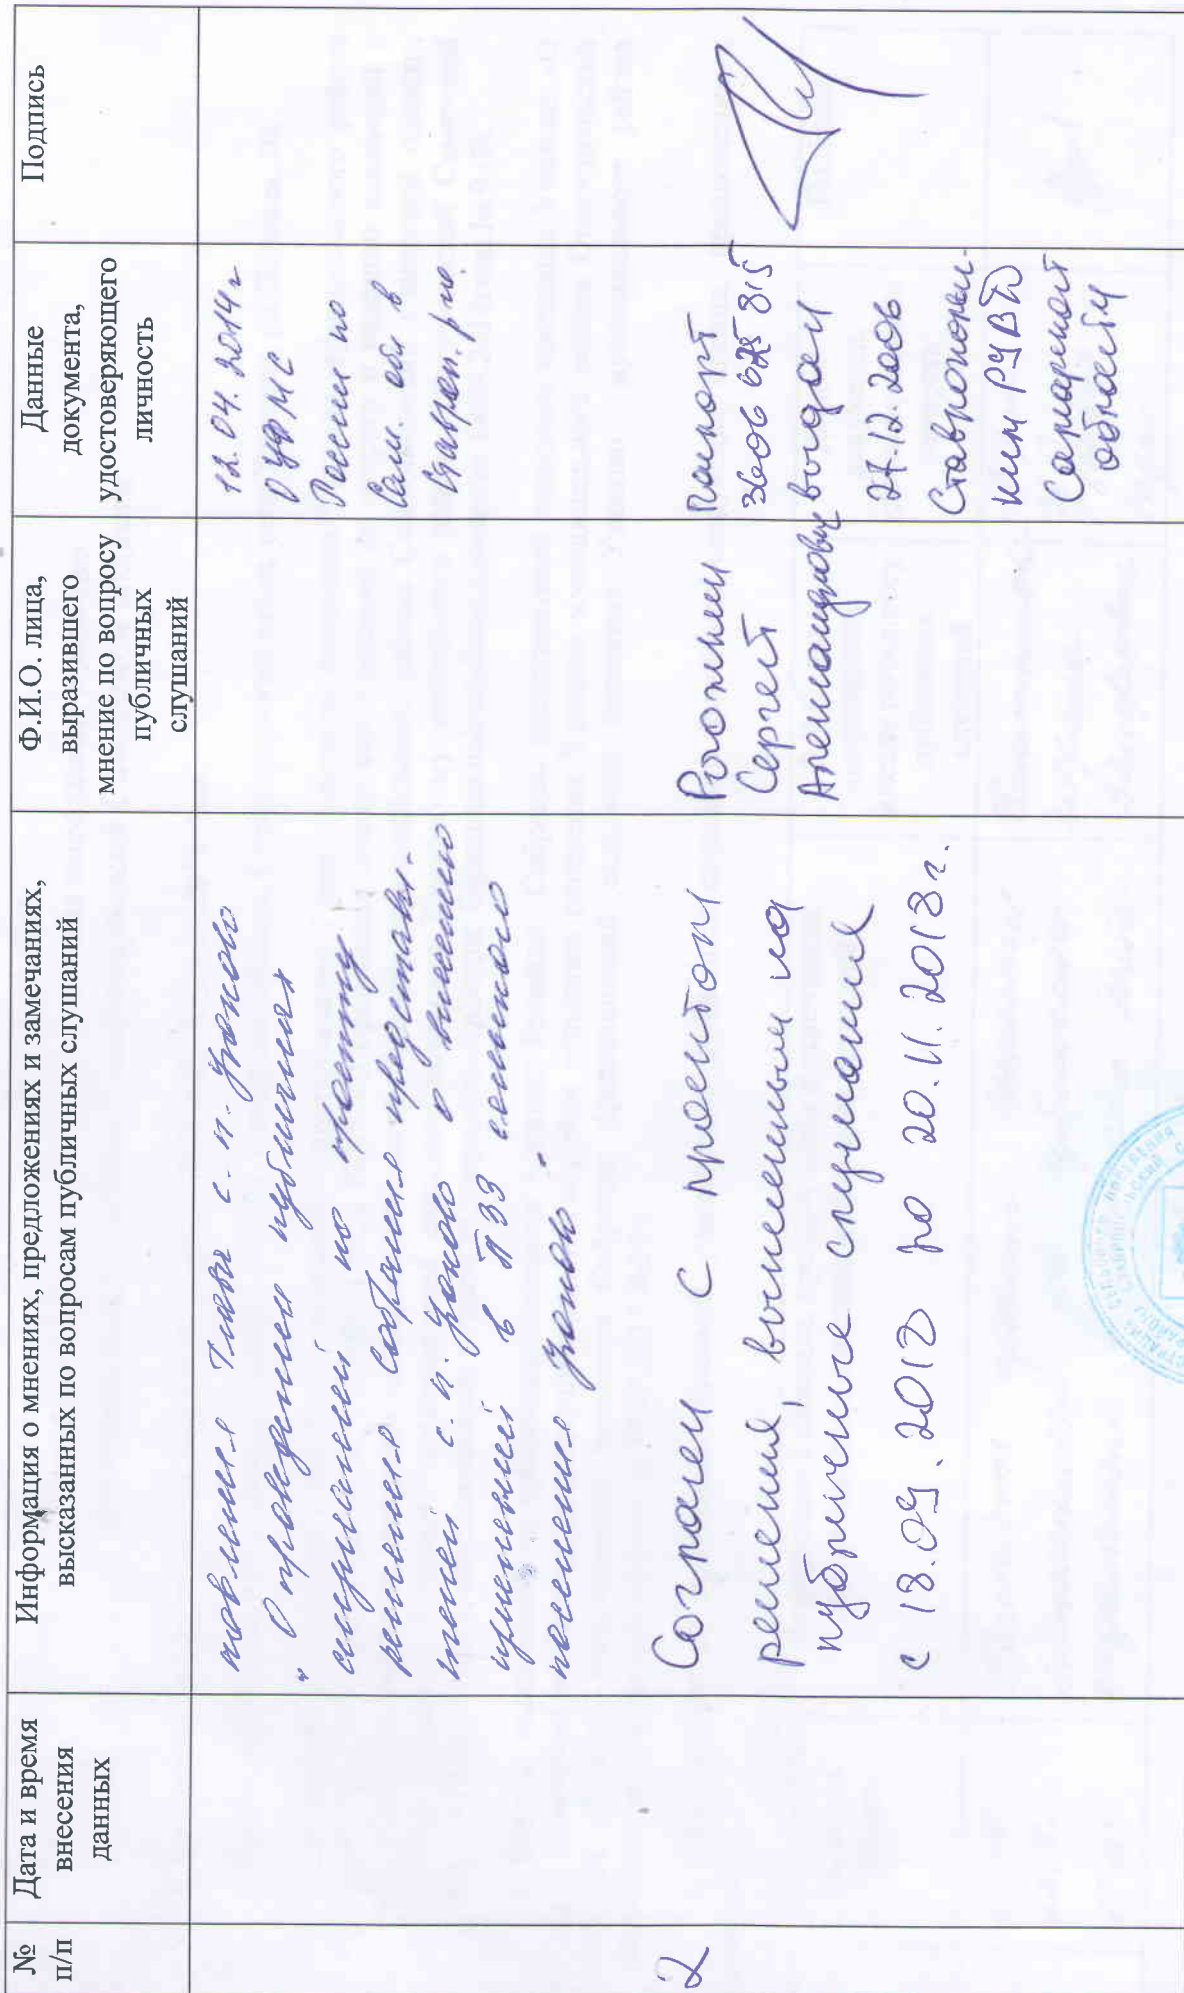 №
п/п
Дата и время
внесения
данных
Информация о мнениях, предложениях и замечаниях,
высказанных по вопросам публичных слушаний
Ф.И.О. лица,
выразившего
мнение по вопросу
публичных
слушаний
Данные
документа,
удостоверяющего
личность
Подпись
новления Главы с.п.
"О проведении публичных
слушаний по проекту
решения Собрания представи-
телей с.п. о внесении
изменений в ПЗЗ сельского
поселения
12.04.2014г
ОУФМС
России по
Сам. обл в
Ставроп. р-не.
2
Согласен с проектом
решения, вынесенным на
публичные слушания
с 18.09.2013 по 20.11.2013г.
Сергей
Александрович
Паспорт
3606 815
выдан
27.12.2006
Ставрополь-
ким РУВД
Самарской
области